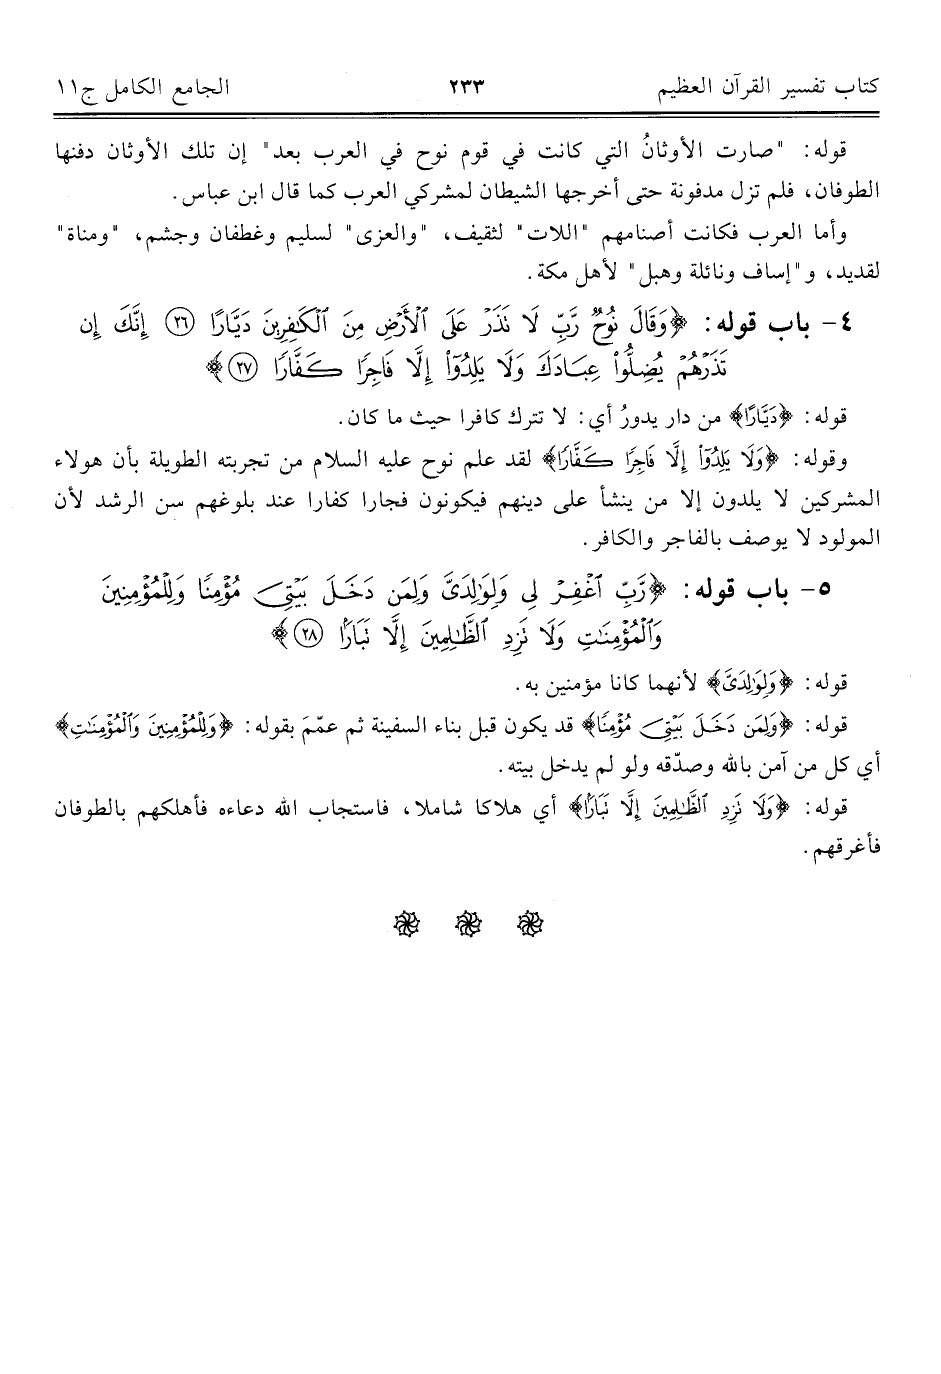 كتاب تفسير القرآن العظيم ٢٣٣ الجامع الكامل ج١١
قوله: "صارت الأوثانُ التي كانت في قوم نوح في العرب بعد" إن تلك الأوثان دفنها
الطوفان، فلم تزل مدفونة حتى أخرجها الشيطان لمشركي العرب كما قال ابن عباس.
وأما العرب فكانت أصنامهم "اللات" لثقيف، "والعزى" لسليم وغطفان وجشم، "ومناة"
لقديد، و"إساف ونائلة وهبل" لأهل مكة.
٤- باب قوله: ﴿وَقَالَ نُوحٌ رَّبِّ لَا تَذَرْ عَلَى ٱلْأَرْضِ مِنَ ٱلْكَٰفِرِينَ دَيَّارًا ۝٢٦ إِنَّكَ إِن
تَذَرْهُمْ يُضِلُّوا۟ عِبَادَكَ وَلَا يَلِدُوٓا۟ إِلَّا فَاجِرًا كَفَّارًا ۝٢٧﴾
قوله: ﴿دَيَّارًا﴾ من دار يدورُ أي: لا تترك كافرا حيث ما كان.
وقوله: ﴿وَلَا يَلِدُوٓا۟ إِلَّا فَاجِرًا كَفَّارًا﴾ لقد علم نوح عليه السلام من تجربته الطويلة بأن هولاء
المشركين لا يلدون إلا من ينشأ على دينهم فيكونون فجارا كفارا عند بلوغهم سن الرشد لأن
المولود لا يوصف بالفاجر والكافر.
٥- باب قوله: ﴿رَّبِّ ٱغْفِرْ لِى وَلِوَٰلِدَىَّ وَلِمَن دَخَلَ بَيْتِىَ مُؤْمِنًا وَلِلْمُؤْمِنِينَ
وَٱلْمُؤْمِنَٰتِ وَلَا تَزِدِ ٱلظَّٰلِمِينَ إِلَّا تَبَارًۢا ۝٢٨﴾
قوله: ﴿وَلِوَٰلِدَىَّ﴾ لأنهما كانا مؤمنين به.
قوله: ﴿وَلِمَن دَخَلَ بَيْتِىَ مُؤْمِنًا﴾ قد يكون قبل بناء السفينة ثم عمّمَ بقوله: ﴿وَلِلْمُؤْمِنِينَ وَٱلْمُؤْمِنَٰتِ﴾
أي كل من آمن بالله وصدّقه ولو لم يدخل بيته.
قوله: ﴿وَلَا تَزِدِ ٱلظَّٰلِمِينَ إِلَّا تَبَارًۢا﴾ أي هلاكا شاملا، فاستجاب الله دعاءه فأهلكهم بالطوفان
فأغرقهم.